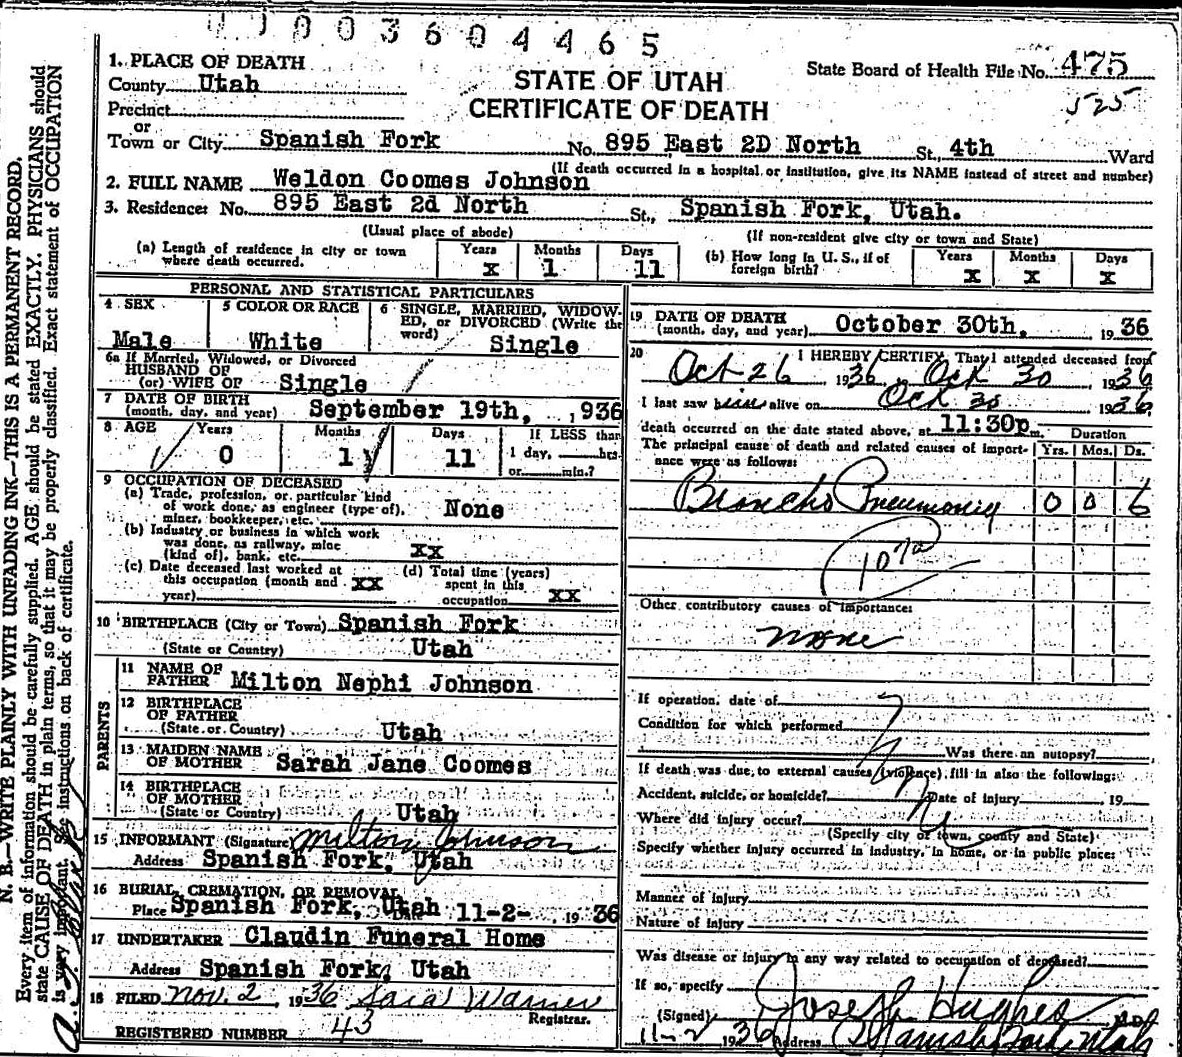 003604465
1. PLACE OF DEATH
County Utah
Precinct
or
Town or City Spanish Fork No. 895 East 2D North St., 4th Ward
STATE OF UTAH
CERTIFICATE OF DEATH
State Board of Health File No. 475
525
(If death occurred in a hospital or institution, give its NAME instead of street and number)
2. FULL NAME Weldon Coomes Johnson
3. Residence: No. 895 East 2d North St., Spanish Fork, Utah.
(Usual place of abode) (If non-resident give city or town and State)
(a) Length of residence in city or town where death occurred. Years x Months 1 Days 11
(b) How long in U. S., if of foreign birth? Years x Months x Days x
PERSONAL AND STATISTICAL PARTICULARS
4 SEX Male
5 COLOR OR RACE White
6 SINGLE, MARRIED, WIDOWED, or DIVORCED (Write the word) Single
6a If Married, Widowed, or Divorced
HUSBAND OF
(or) WIFE OF Single
7 DATE OF BIRTH
(month, day, and year) September 19th, ,936
8 AGE Years 0 Months 1 Days 11 If LESS than 1 day, hrs. or min.?
9 OCCUPATION OF DECEASED
(a) Trade, profession, or particular kind
of work done, as engineer (type of), None
miner, bookkeeper, etc.
(b) Industry or business in which work
was done, as railway, mine
(kind of), bank, etc. xx
(c) Date deceased last worked at
this occupation (month and year) xx
(d) Total time (years)
spent in this
occupation xx
10 BIRTHPLACE (City or Town) Spanish Fork
(State or Country) Utah
PARENTS
11 NAME OF
FATHER Milton Nephi Johnson
12 BIRTHPLACE
OF FATHER
(State or Country) Utah
13 MAIDEN NAME
OF MOTHER Sarah Jane Coomes
14 BIRTHPLACE
OF MOTHER
(State or Country) Utah
15 INFORMANT (Signature) Milton Johnson
Address Spanish Fork, Utah
16 BURIAL, CREMATION, OR REMOVAL
Place Spanish Fork, Utah 11-2- 1936
17 UNDERTAKER Claudin Funeral Home
Address Spanish Fork, Utah
18 FILED Nov. 2 1936 Sara Warner
Registrar.
REGISTERED NUMBER 43
19 DATE OF DEATH
(month, day, and year) October 30th, 1936
20 I HEREBY CERTIFY, That I attended deceased from
Oct 26 1936 Oct 30 1936
I last saw him alive on Oct 30 1936
death occurred on the date stated above, at 11:30p m.
Duration
The principal cause of death and related causes of importance were as follows: Yrs. Mos. Ds.
Broncho Pneumonia 0 0 6
107a
Other contributory causes of importance:
none
If operation, date of
Condition for which performed
Was there an autopsy?
If death was due to external causes (violence), fill in also the following:
Accident, suicide, or homicide? Date of injury 19
Where did injury occur?
(Specify city or town, county and State)
Specify whether injury occurred in industry, in home, or in public place:
Manner of injury
Nature of injury
Was disease or injury in any way related to occupation of deceased?
If so, specify
(Signed) Joseph Hughes M.D.
11-2 1936 Address Spanish Fork Utah
N. B.—WRITE PLAINLY WITH UNFADING INK—THIS IS A PERMANENT RECORD.
Every item of information should be carefully supplied. AGE should be stated EXACTLY. PHYSICIANS should
state CAUSE OF DEATH in plain terms, so that it may be properly classified. Exact statement of OCCUPATION
is very important. See instructions on back of certificate.